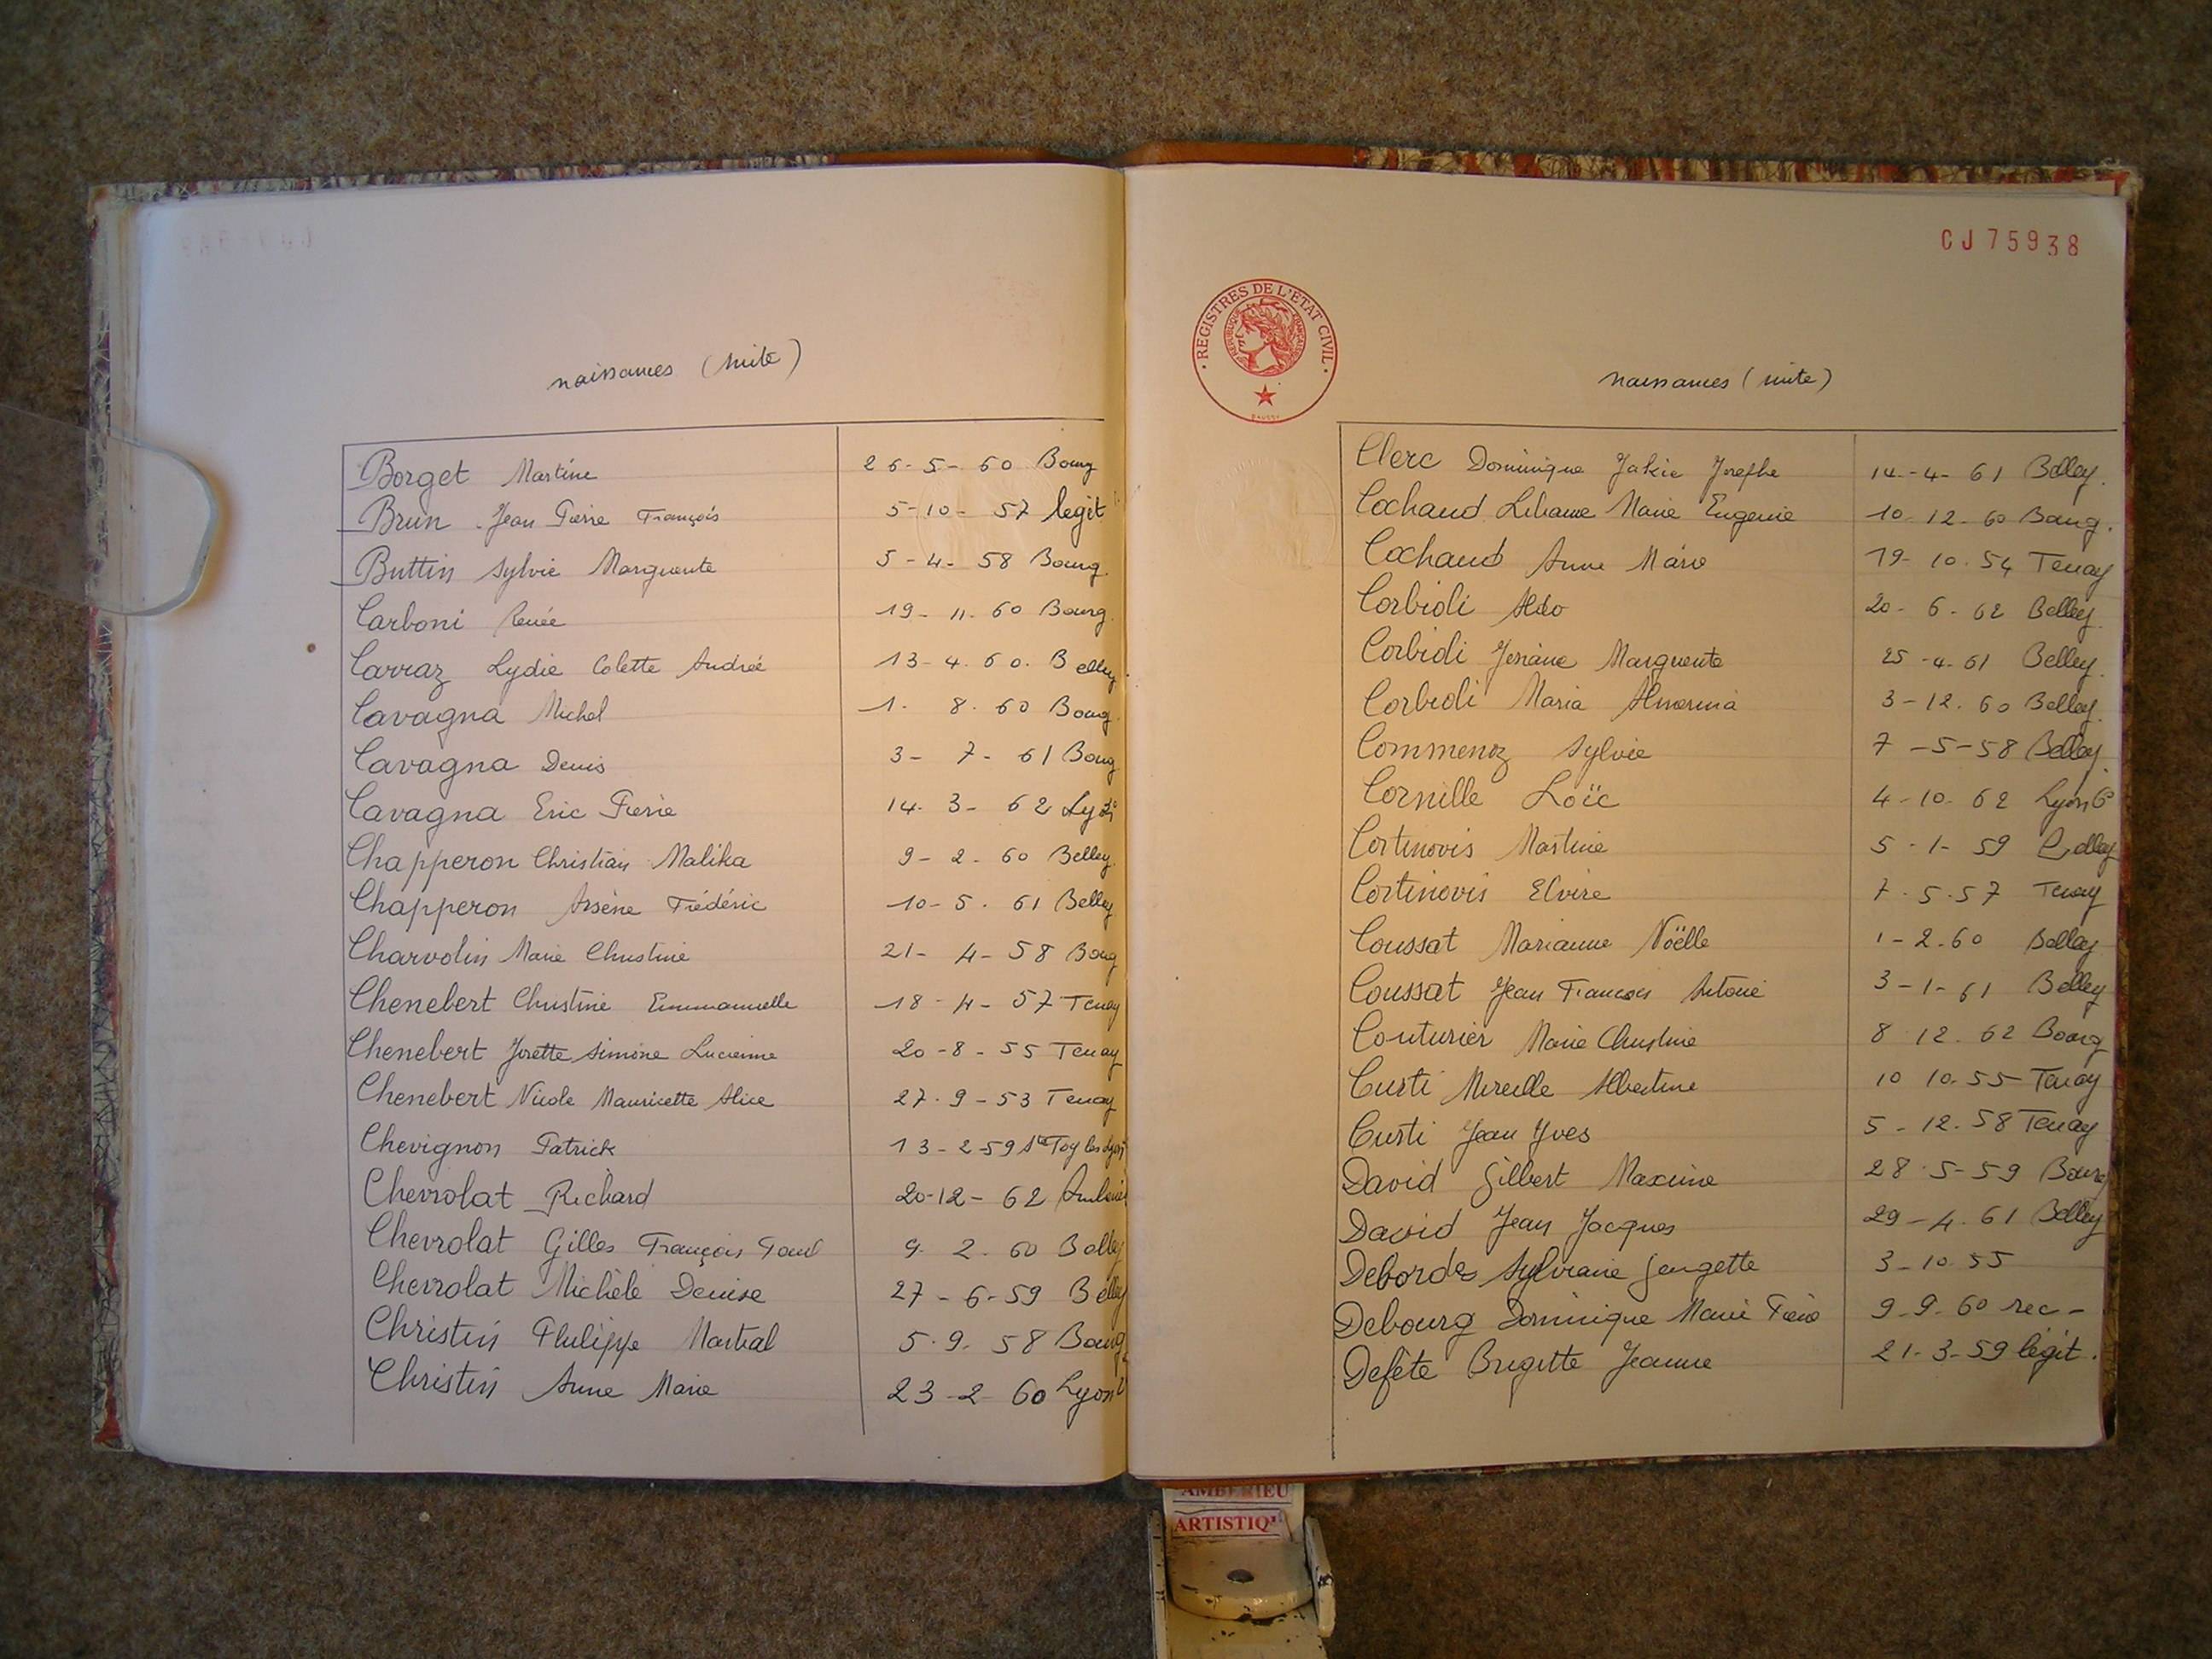 naissances (suite)
Borget Martine 26-5-60 Bourg
Brun Jean Pierre François 5-10-57 legit
Buttin Sylvie Marguerite 5-4-58 Bourg.
Carboni Renée 19-11-60 Bourg.
Carraz Lydie Colette Andrée 13-4.60. Belley.
Cavagna Michel 1. 8.60 Bourg.
Cavagna Denis 3-7-61 Bourg
Cavagna Eric Pierre 14.3-62
Chapperon Christian Malika 9-2-60 Belley.
Chapperon Arsène Frédéric 10-5.61 Belley
Charvolin Marie Christine 21-4-58 Bourg
Chenebert Christine Emmanuelle 18-4-57 Tenay
Chenebert Josette Simone Lucienne 20-8-55 Tenay
Chenebert Nicole Mauricette Alice 27.9-53 Tenay
Chevignon Patrick 13-2-59 Ste Foy les Lyon
Chevrolat Richard 20-12-62
Chevrolat Gilles François Paul 9.2.60 Belley
Chevrolat Michèle Denise 27-6-59 Belley
Christin Philippe Martial 5.9.58 Bourg
Christin Anne Marie 23-2-60 Lyon
CJ75938
REGISTRES DE L'ETAT CIVIL
REPUBLIQUE FRANÇAISE
naissances (suite)
Clerc Dominique Josephe 14-4-61 Belley.
Cochaud Marie Eugenie 10.12-60 Bourg.
Cochaud Anne Marie 19-10.54 Tenay
Corbidi Aldo 20-6-62 Belley.
Corbidi Josiane Marguerite 25-4.61 Belley.
Corbidi Maria 3-12.60 Belley.
Commenoz Sylvie 7-5-58 Belley.
Cornille Loïc 4-10-62 Lyon 6e
Cortinovis Martine 5-1-59 Belley
Cortinovis Elvire 7.5.57 Tenay
Coussat Marianne Noëlle 1-2.60 Belley
Coussat Jean François Antoine 3-1-61 Belley
Couturier Marie Christine 8 12.62 Bourg
Curti Mireille Albertine 10 10.55 Tenay
Curti Jean Yves 5-12.58 Tenay
David Gilbert Maxime 28.5-59 Bourg
David Jean Jacques 29-4.61 Belley
Debordes Sylviane Georgette 3-10.55
Debourg Dominique Marie Pierre 9-9-60 rec-
Defète Brigitte Jeanne 21-3-59 légit.
AMBERIEU
ARTISTIQ